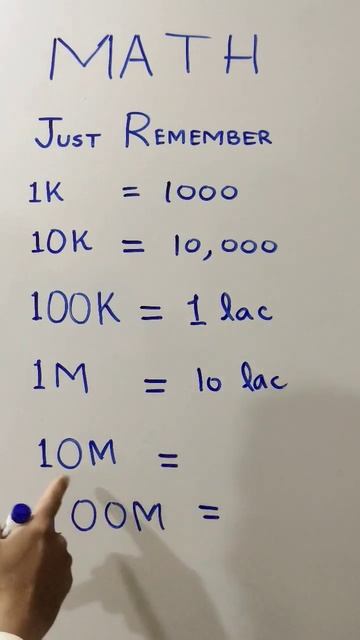 MATH
JUST REMEMBER
1K = 1000
10K = 10,000
100K = 1 lac
1M = 10 lac
10M =
00M =